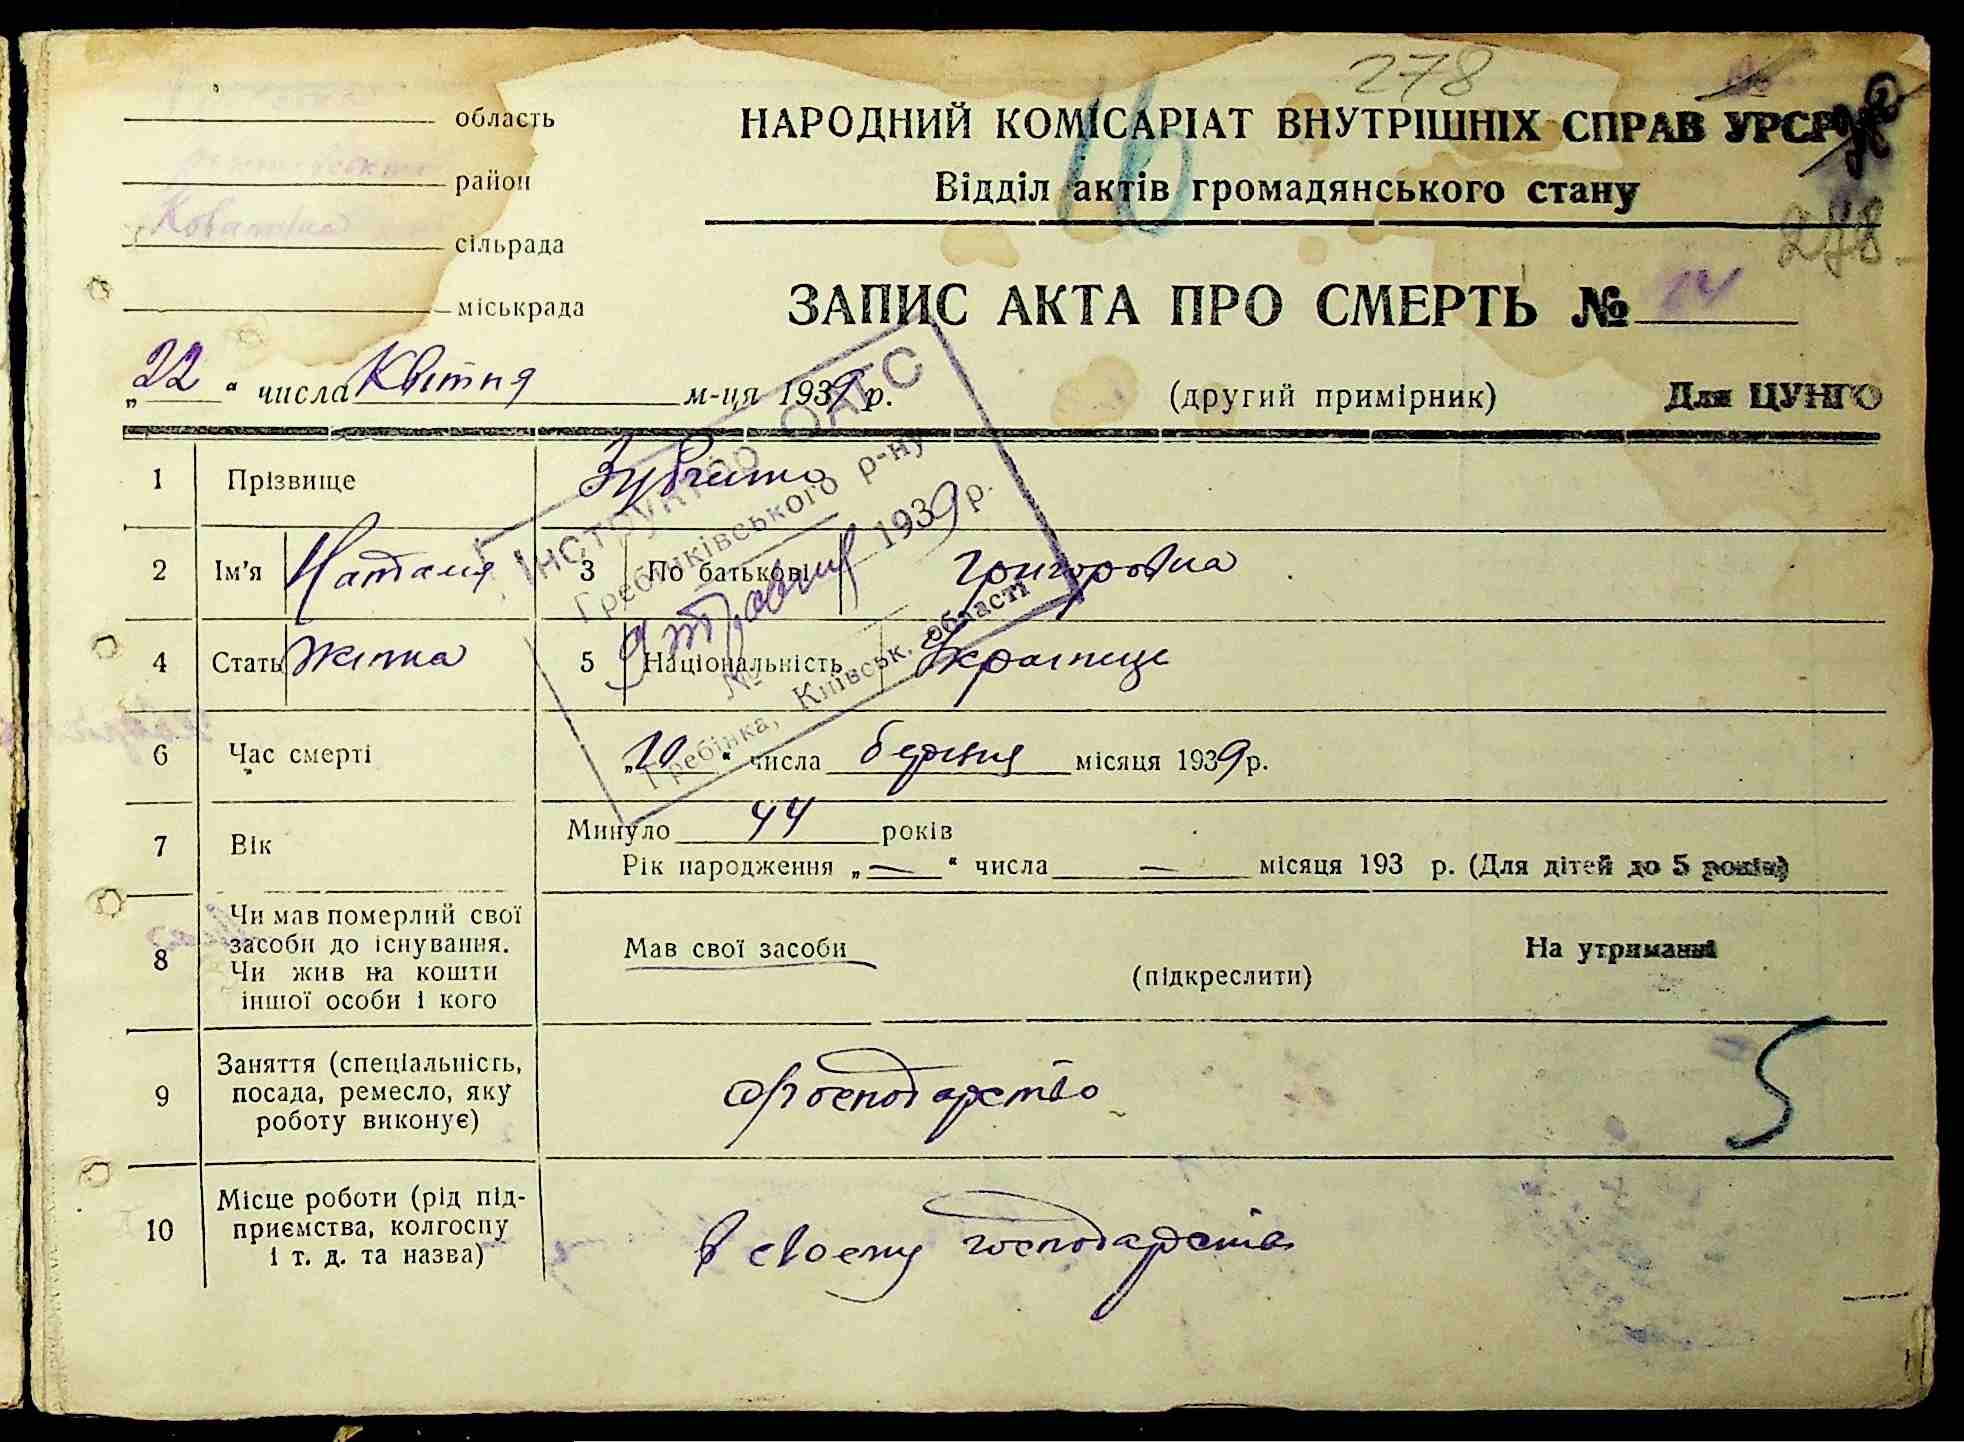 278
область
НАРОДНИЙ КОМІСАРІАТ ВНУТРІШНІХ СПРАВ УРСР
16
район
Відділ актів громадянського стану
сільрада
278
міськрада
ЗАПИС АКТА ПРО СМЕРТЬ № 14
„22“ числа Квітня м-ця 1939 р.
(другий примірник) Для ЦУНГО
Інструктор ОАГС
Гребінківського р-ну
1939 р.
№
Гребінка, Київськ. області
1 Прізвище
2 Ім'я Наталія 3 По батькові Григоровна
4 Стать Жінка 5 Національність Українце
6 Час смерті „20“ числа березня місяця 1939 р.
7 Вік Минуло 44 років
Рік народження „—“ числа — місяця 193 р. (Для дітей до 5 років)
8 Чи мав померлий свої засоби до існування. Чи жив на кошти іншої особи і кого
Мав свої засоби (підкреслити) На утриманні
9 Заняття (спеціальність, посада, ремесло, яку роботу виконує) господарство
5
10 Місце роботи (рід підприємства, колгоспу і т. д. та назва) в своєму господарстві